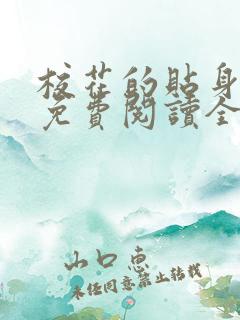 校花的貼身
免費閱讀全
山口惠
未经同意禁止转载